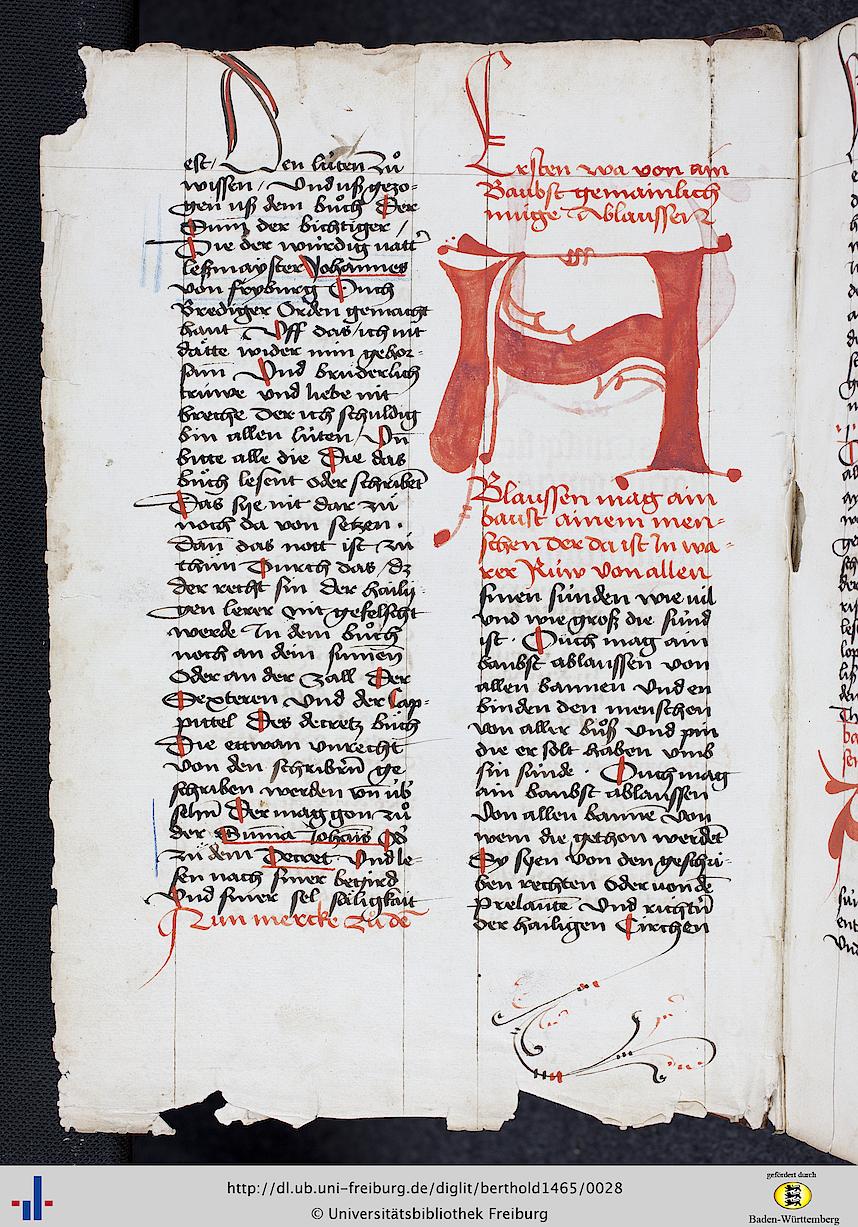 est / Den lúten zuͦ
wissen / Und uß gezo-
gen uß dem buͦch Der
Sum̄ der bichtiger /
Die der würdig vatt'
leßmayster Johannes
von fryburg Ouch
brediger Orden gemacht
haut Uff das / ich nit
dätte wider min gehor-
sam Und brüderlich
trüwe vnd liebe nit
breche Der ich schuldig
bin allen lúten / Vn̄
bitte alle die Die das
buͦch lesent oder schribēt
Das sye nit dar zü
noch da von setzen .
dan̄ das nott ist zü
thün Durch das / dz
der recht sin der hailī-
gen lerer nit gefelscht
werde In dem buͦch
noch an dem sum̄en
Oder an der zall Der
Dexteren Vnd der Cap-
pittel Des decretz buͦch
Die ettwan vnrecht
von den schribern̄ ge
schriben werden vn̄ úb'
sehn̄ Der mag gon zuͦ
der Sum̄a Johān̄s Od'
zü dem Decret Vnd le-
sen nach siner begird
Vnd siner sel säligkait
Nun mercke zü dē
Ersten wa von ain
Baubst gemainlich
müge Ablaussen
A
Blaussen mag ain
baust ainem men-
schen der da ist In wa-
rer Rüw Von allen
sinen sünden wie vil
vnd wie groß die sünd
ist . Ouch mag ain
baubst ablaussen von
allen bannen Vnd en
binden den menschen
von aller buͦß Vnd pin
die er solt haben vmb
sin sünde . Ouch mag
ain baubst ablaussen
Von allen bannē Von
wem die gethon werdēt
Sy syen von den geschri-
ben rechten Oder von dē
Prelautē Vnd richtn̄
der hailigen Circhen
http://dl.ub.uni-freiburg.de/diglit/berthold1465/0028
© Universitätsbibliothek Freiburg
gefördert durch
Baden-Württemberg